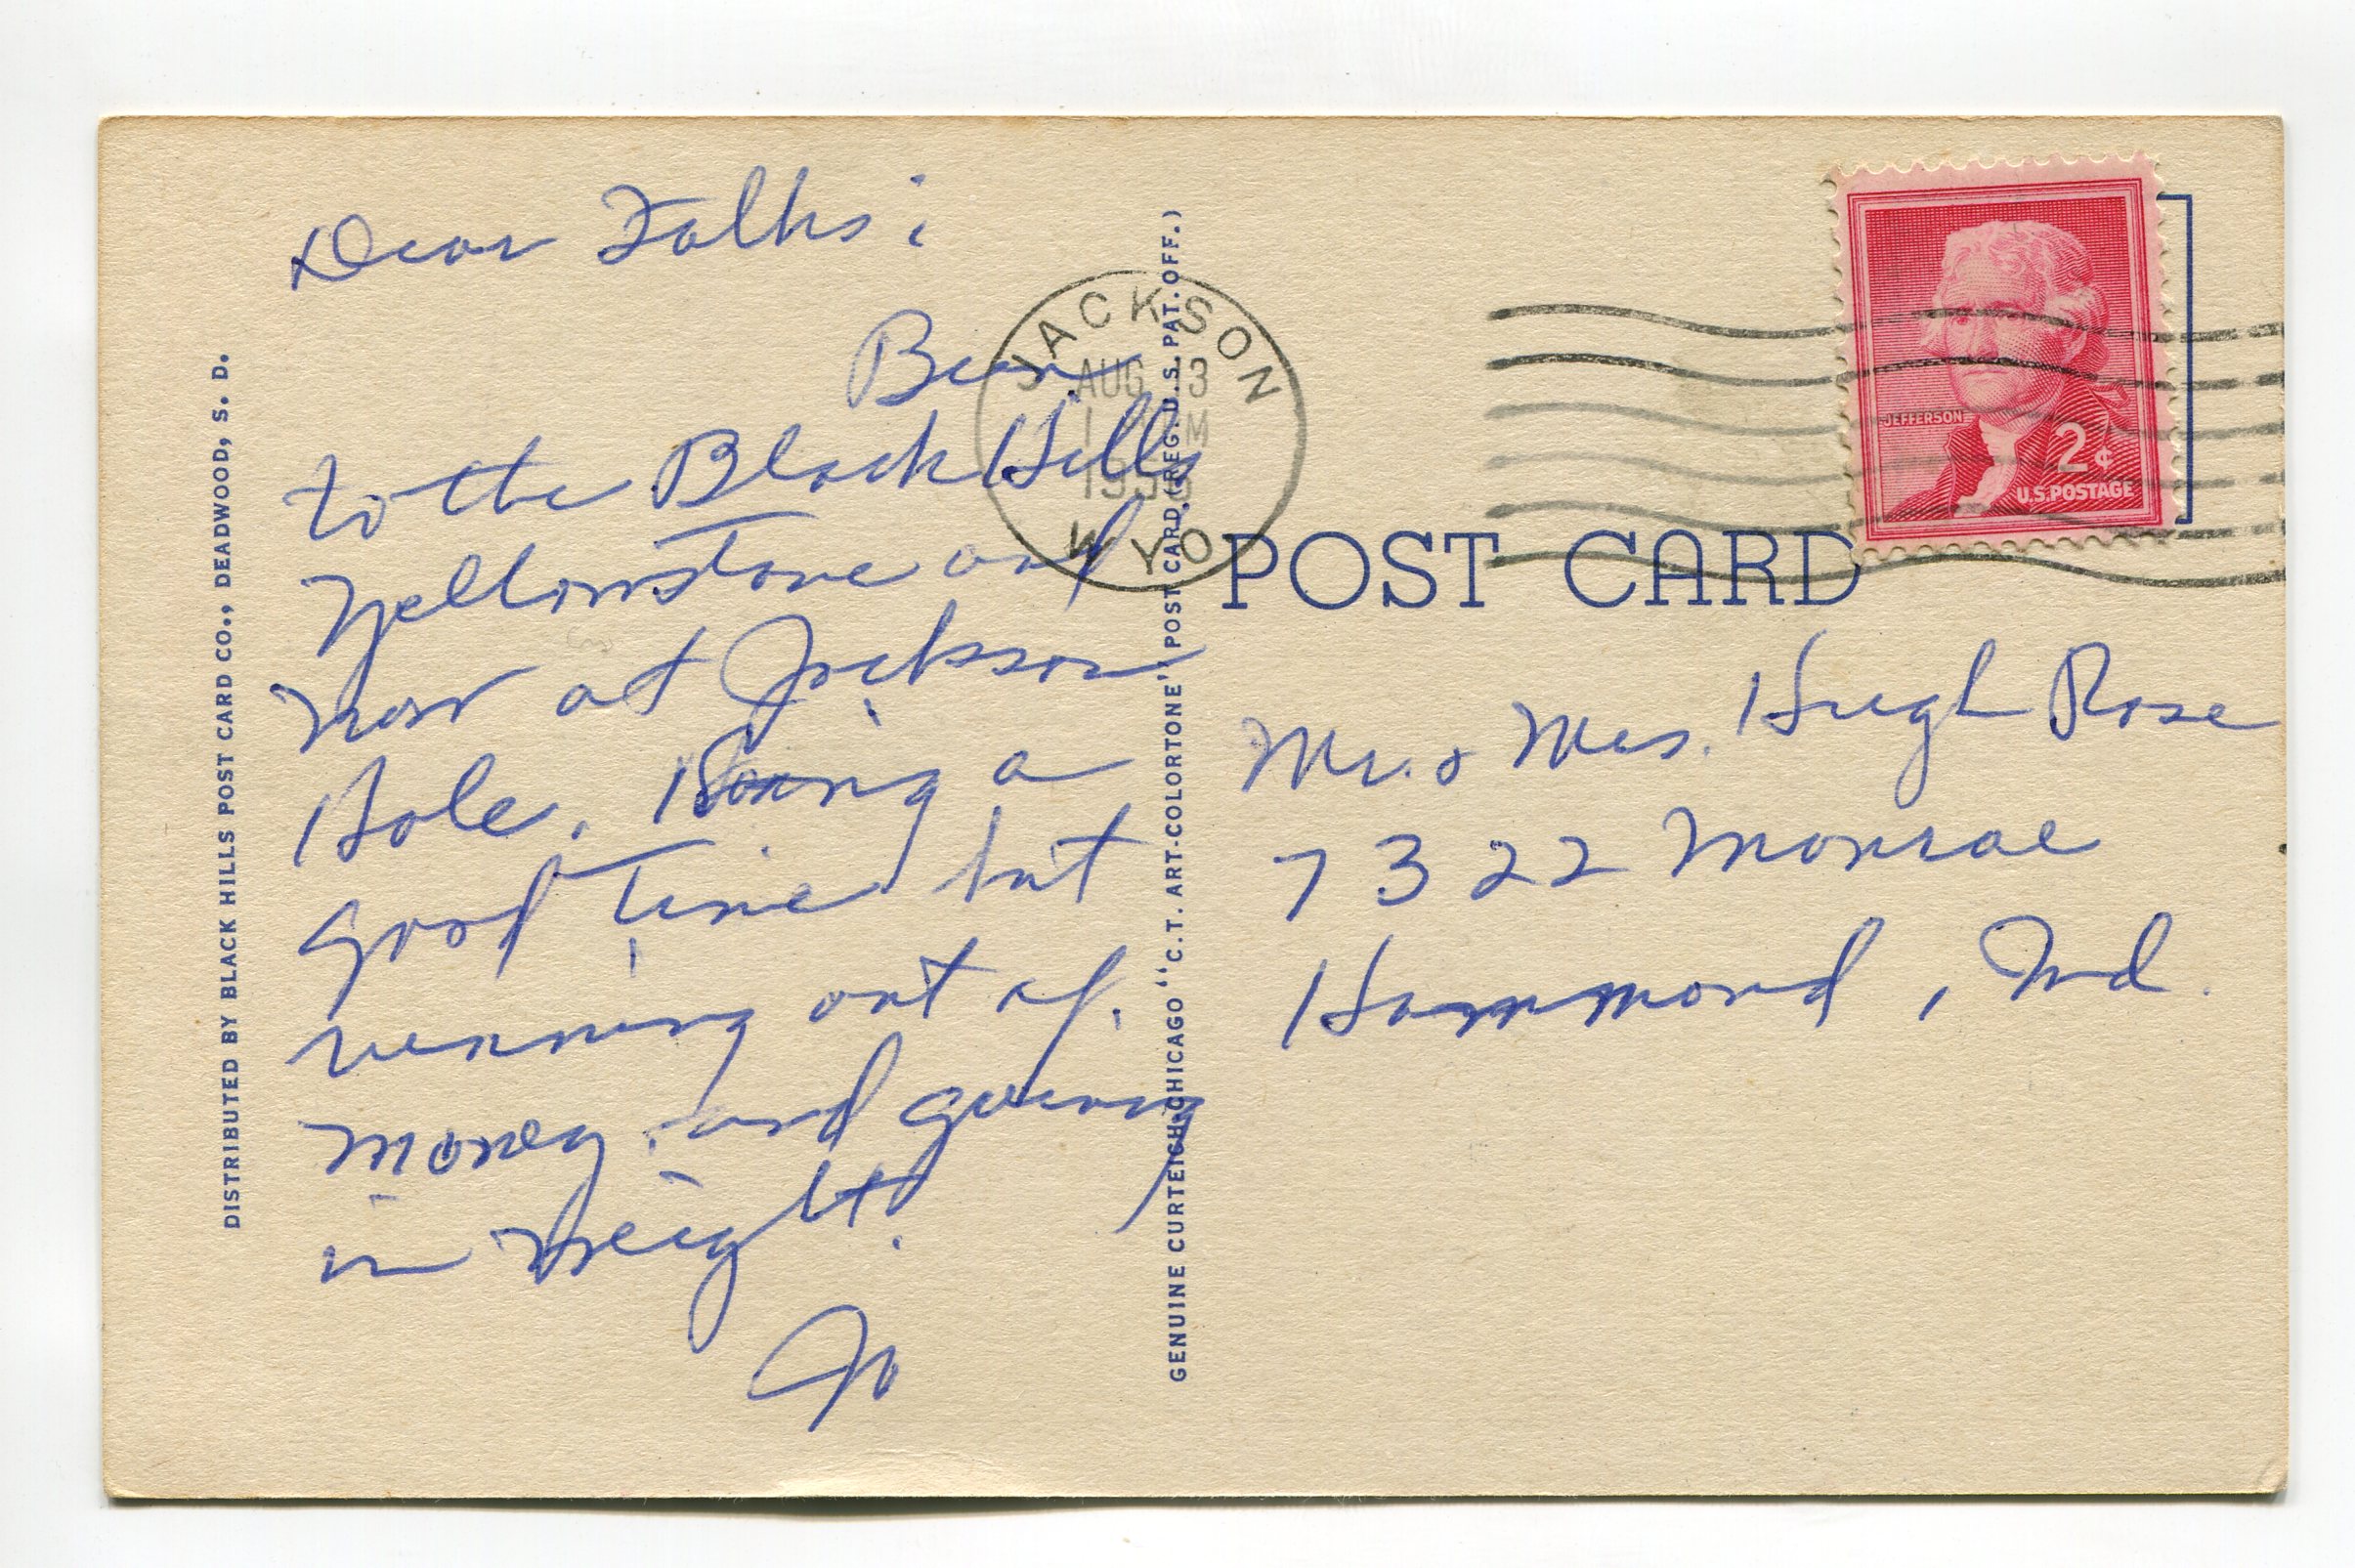 Dear Folks:
Been
to the Black Hills
Yellowstone and
now at Jackson
Hole. a
good time but
running out of
money and gaining
in weight.
Jo
DISTRIBUTED BY BLACK HILLS POST CARD CO., DEADWOOD, S. D.
GENUINE CURTEICH-CHICAGO "C.T. ART-COLORTONE" POST CARD (REG. U.S. PAT. OFF.)
JACKSON
AUG 3
WYO
JEFFERSON
2¢
U.S. POSTAGE
POST CARD
Mr. & Mrs. Hugh Rose
7322 Monroe
Hammond, Ind.